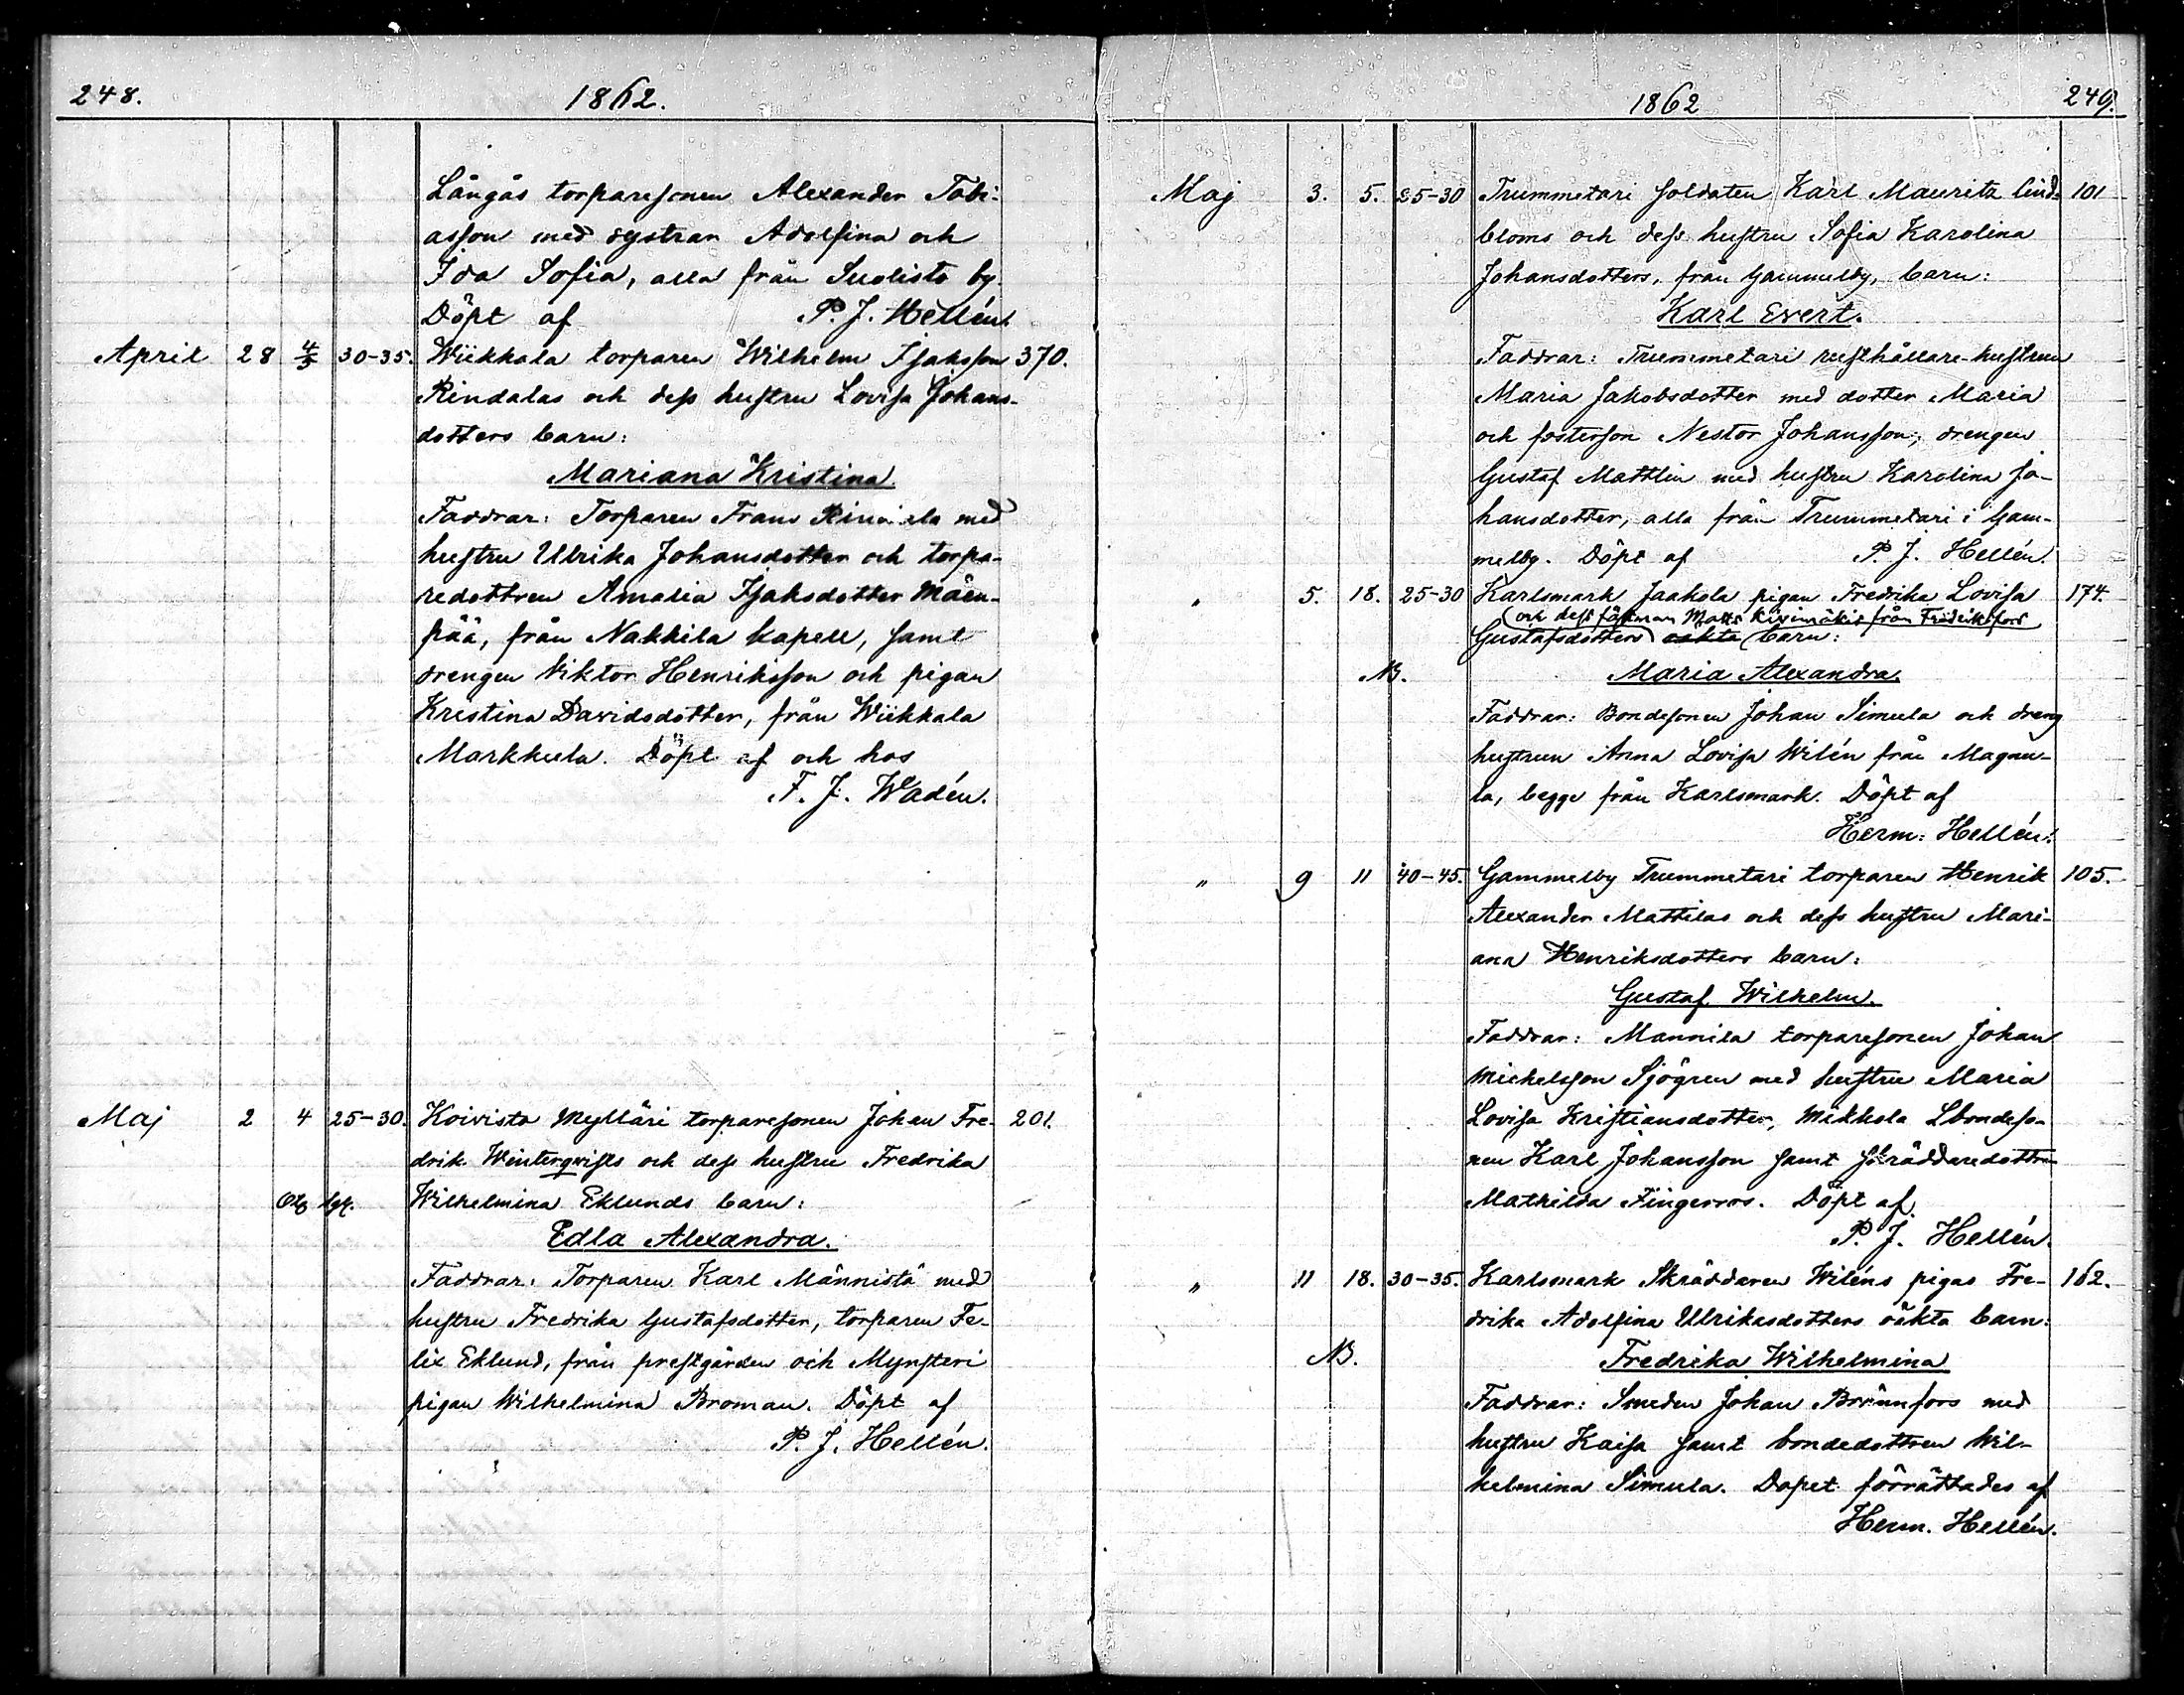 248.
1862.
Långås torparesonen Alexander Tobi-
asson med systrar Adolfina och
Ida Sofia, alla från Suolisto by.
Döpt af P. J. Hellén.
April 28 4/5 30-35. Wiikkala torparen Wilhelm Isaksson 370.
Rindalas och dess hustru Lovisa Johans-
dotters barn:
Mariana Kristina.
Faddrar: Torparen Frans Rindala med
hustru Ulrika Johansdotter och torpa-
redottren Amalia Isaksdotter Mäen-
pää, från Nakkila kapell, samt
drengen Viktor Henriksson och pigan
Kristina Davidsdotter, från Wiikkala
Markkula. Döpt af och hos
F. J. Wadén.
Maj 2 4 25-30. Koivisto Mylläri torparesonen Johan Fre- 201.
drik Winterqvists och dess hustru Fredrika
Wilhelmina Eklunds barn:
Edla Alexandra.
Faddrar: Torparen Karl Männistö med
hustru Fredrika Gustafsdotter, torparen Fe-
lix Eklund, från prestgården och Mynsteri
pigan Wilhelmina Broman. Döpt af
P. J. Hellén.
1862
249.
Maj 3. 5. 25-30 Trummetari Soldaten Karl Mauritz Lind- 101
bloms och dess hustru Sofia Karolina
Johansdotters, från Gammelby, barn:
Karl Evert.
Faddrar: Trummetari rusthållare-hustrun
Maria Jakobsdotter med dotter Maria
och fosterson Nestor Johansson; drengen
Gustaf Mattlin med hustru Karolina Jo-
hansdotter, alla från Trummetari i Gam-
melby. Döpt af P. J. Hellén.
" 5. 18. 25-30 Karlsmark Jaakola pigan Fredrika Lovisa 174.
(och dess fästman Matts Kivimäkis från Fredriksfors
Gustafsdotters oäkta barn:
NB. Maria Alexandra.
Faddrar: Bondesonen Johan Simula och dreng
hustrun Anna Lovisa Wilén från Magnu-
la, begge från Karlsmark. Döpt af
Herm. Hellén.
" 9 11 40-45. Gammelby Trummetari torparen Henrik 105.
Alexander Mattilas och dess hustru Mari-
ana Henriksdotters barn:
Gustaf Wilhelm.
Faddrar: Mannila torparesonen Johan
Michelsson Sjögren med hustru Maria
Lovisa Kristiansdotter, Mikkola Lbondeso-
nen Karl Johansson samt skräddaredottren
Mathilda Fingerroos. Döpt af
P. J. Hellén.
" 11 18. 30-35. Karlsmark Skräddaren Wiléns pigas Fre- 162.
drika Adolfina Ulrikasdotters oäkta barn:
NB. Fredrika Wilhelmina
Faddrar: Smeden Johan Brännfors med
hustru Kaisa samt bondedottren Wil-
helmina Simula. Dopet förrättades af
Herm. Hellén.